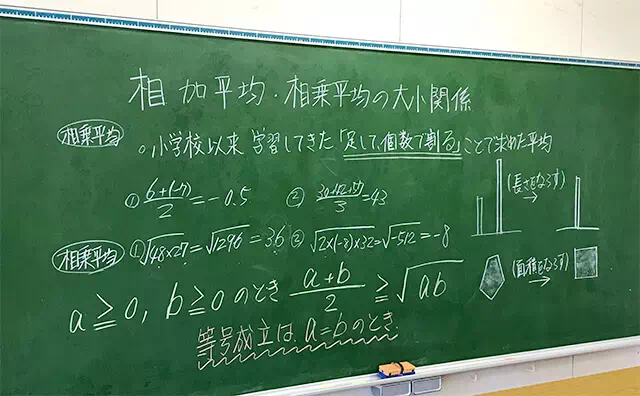 相加平均・相乗平均の大小関係
相乗平均
○小学校以来 学習してきた「足して、個数で割る」ことで求めた平均
① (6+(-7))/2 = -0.5 ② /3 = 43
(長さをならす)
→
相乗平均 ① √48×27 = √1296 = 36 ② √2×(-8)×32 = √-512 = -8
(面積をならす)
→
a≧0, b≧0のとき (a+b)/2 ≧ √ab
等号成立は、a=bのとき.